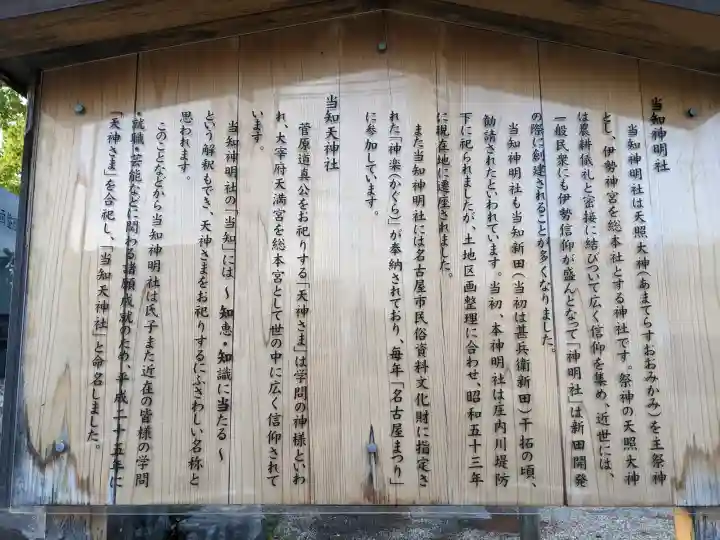 当知神明社
当知神明社は天照大神(あまてらすおおみかみ)を主祭神
とし、伊勢神宮を総本社とする神社です。祭神の天照大神
は農耕儀礼と密接に結びついて広く信仰を集め、近世には、
一般民衆にも伊勢信仰が盛んとなって「神明社」は新田開発
の際に創建されることが多くなりました。
当知神明社も当知新田(当初は甚兵衛新田)干拓の頃、
勧請されたといわれています。当初、本神明社は庄内川堤防
下に祀られましたが、土地区画整理に合わせ、昭和五十三年
に現在地に遷座されました。
また当知神明社には名古屋市民俗資料文化財に指定さ
れた「神楽(かぐら)」が奉納されており、毎年「名古屋まつり」
に参加しています。
当知天神社
菅原道真公をお祀りする「天神さま」は学問の神様といわ
れ、大宰府天満宮を総本宮として世の中に広く信仰されて
います。
当知神明社の「当知」には 〜 知恵・知識に当たる 〜
という解釈もでき、天神さまをお祀りするにふさわしい名称と
思われます。
このことなどから当知神明社は氏子また近在の皆様の学問
、就職・芸能などに関わる諸願成就のため、平成二十五年に
「天神さま」を合祀し、「当知天神社」と命名しました。